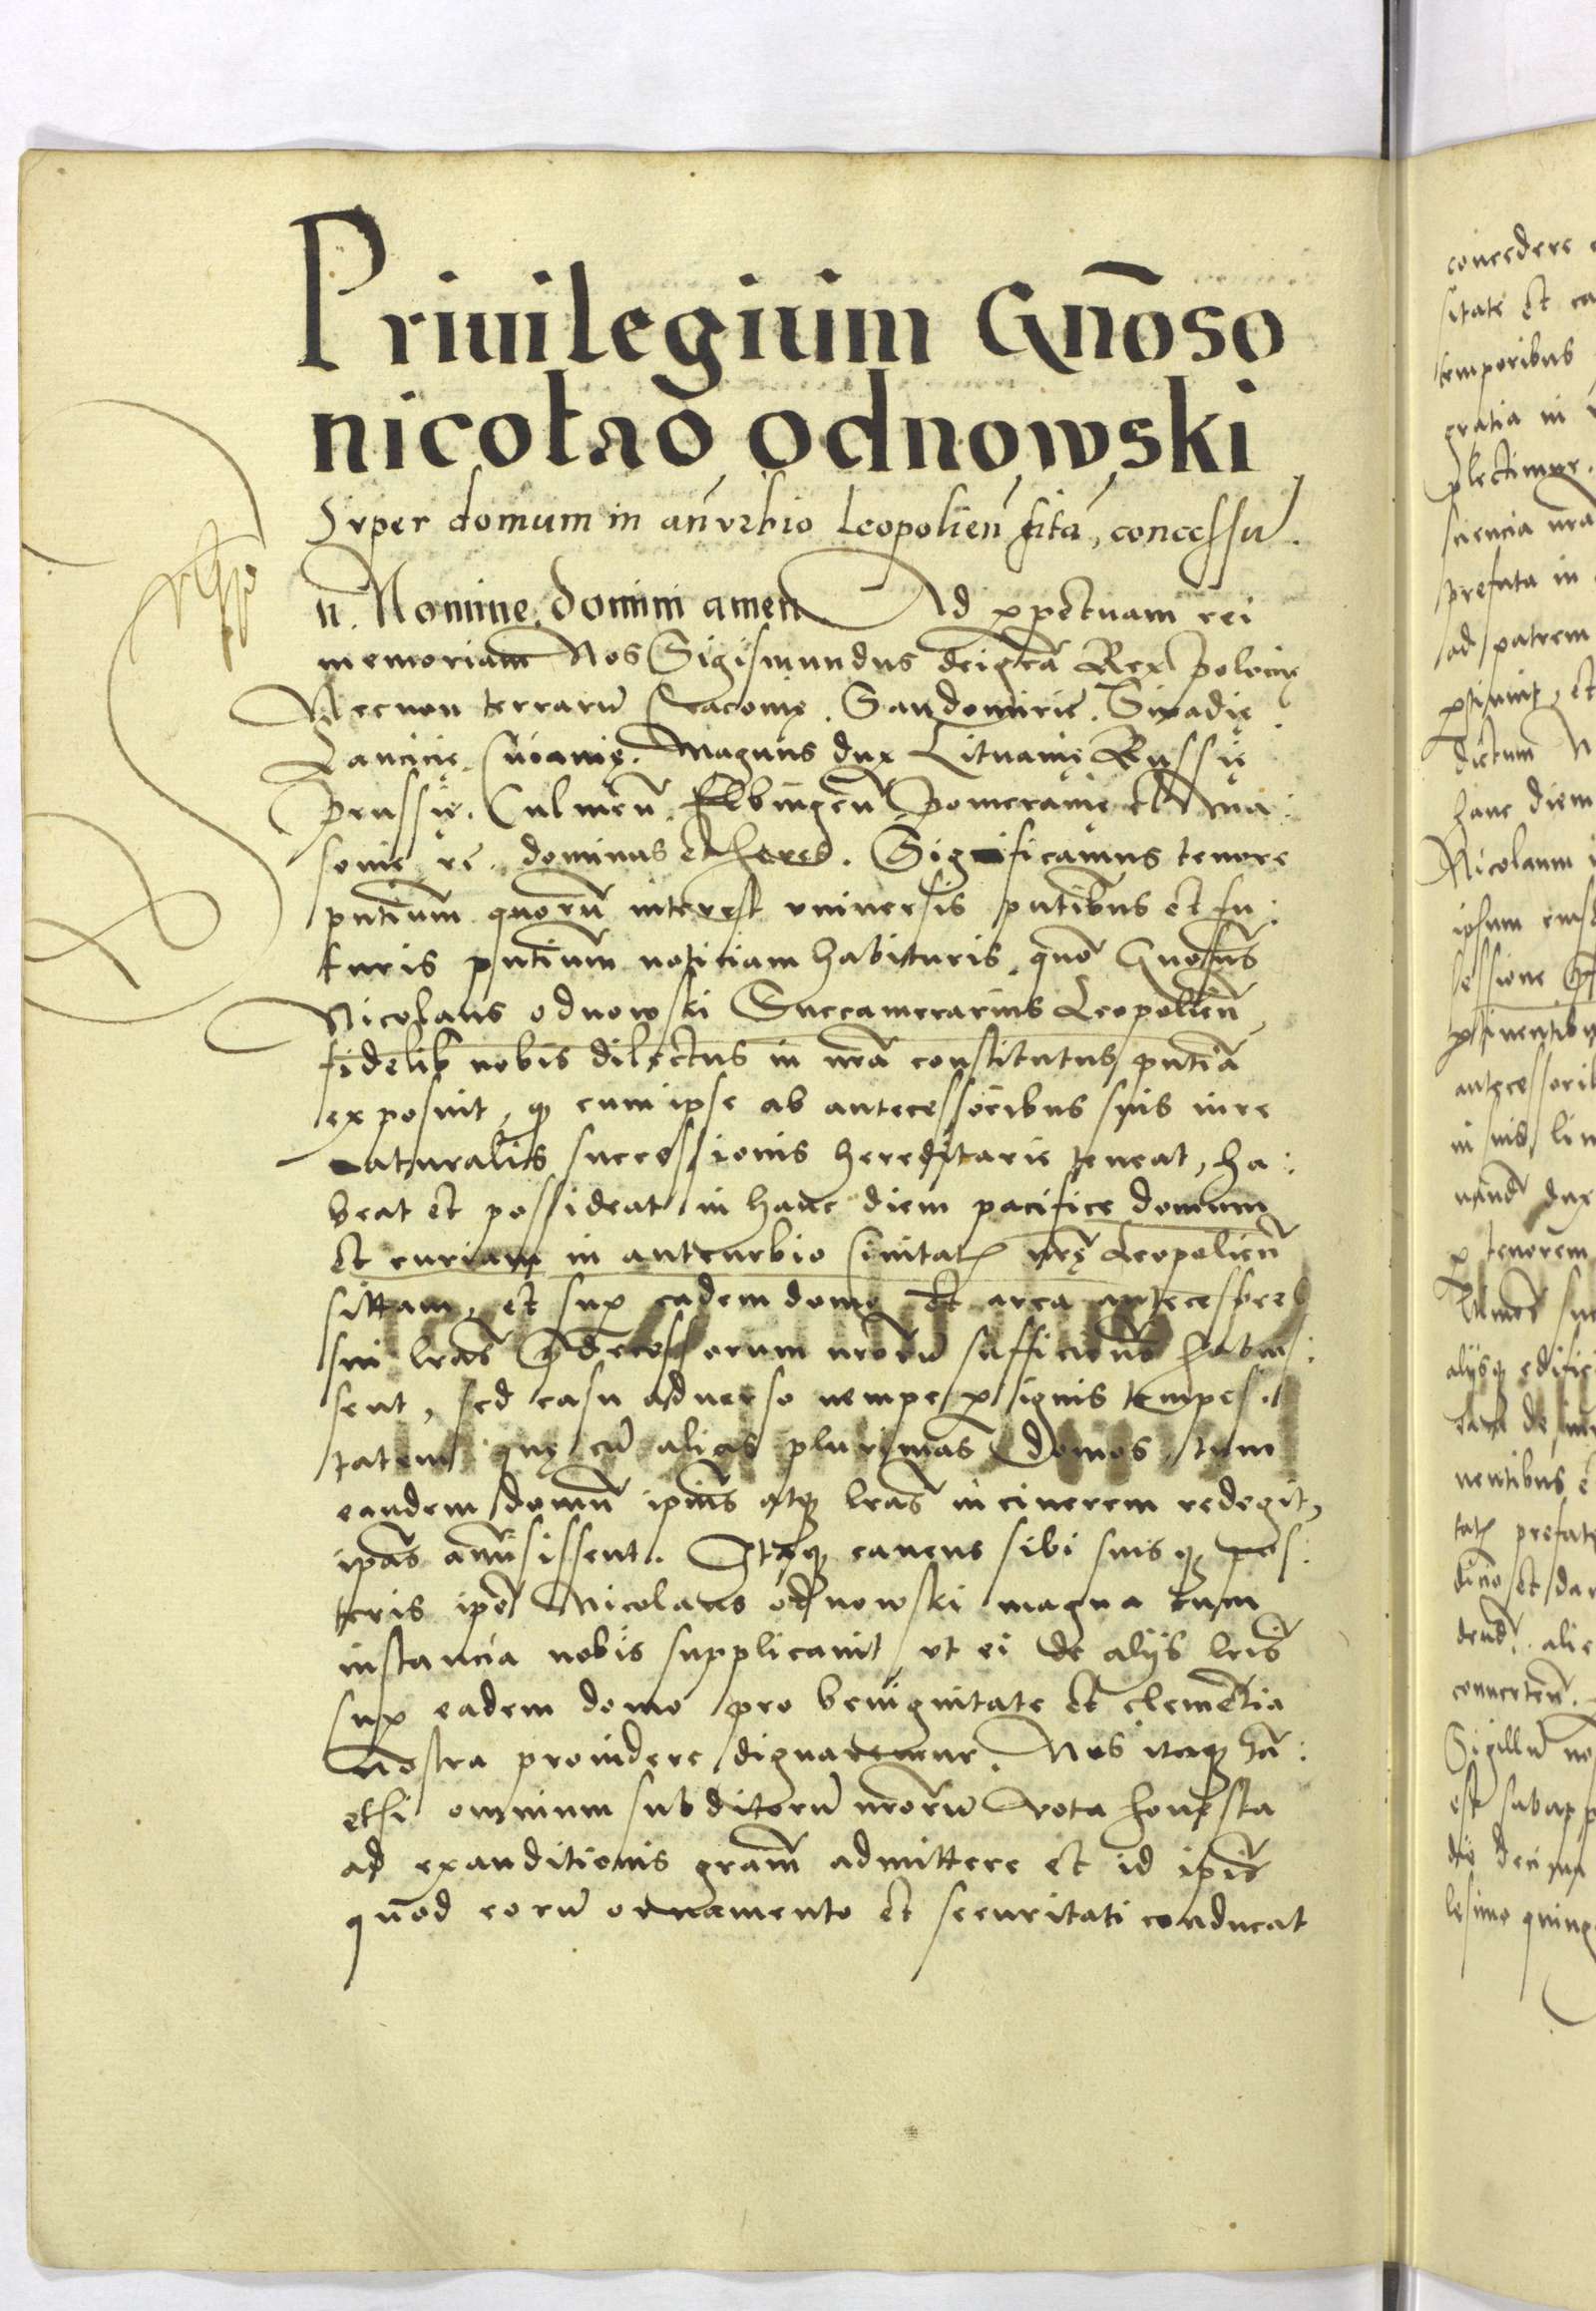 Priuilegium Gn̄oso
nicolao odnowski
Super domum in an̄vrbio Leopolien̄ sitā, concessū.
In Nomine domini amen Ad ꝑpetuam rei
memoriam Nos Sigismundus dei gr̄a Rex polonię
Necnon terrarū Cracouię. Sandomirię. Siradię
Lancicię. Cuiauię. Magnus dux Lituanię Russię
prussię. Culmen̄. Elbingen̄ pomeranię et Ma:
souię rc̄. dominus et heres. Significamus tenore
pn̄tium quorū interest vniuersis pn̄tibus et fu:
turis pn̄tium noticiam habituris, quō Gn̄osus
Nicolaus odnowski Succamerarius Leopolien̄,
fidelis nobis dilectus in nr̄a constitutus pn̄tia
exposuit, ꝙ cum ipse ab antecessoribus suis iure
naturalis successionis hereditarie teneat, ha:
beat et possideat in hanc diem pacifice domum
et curiam in anteurbio Ciuitatis nr̄ę Leopolien̄
sittam, et suꝑ eadem domo et area antecessores
sui lrās predecessorum nr̄orū sufficien̄s habuis:
sent, sed casu aduerso nempe ꝑ ignis tempes.
tatem quę cū alias plurimas domos, tum
eandem domū ipius atqꝫ lrās in cinerem redegit,
ipās amisissent. Itaqꝫ cauens sibi suisqꝫ pos:
teris ipē Nicolaus odnowski magna cum
instancia nobis supplicauit vt ei de alijs lris̄
suꝑ eadem domo pro benignitate et clemētia
nostra prouidere dignaremur. Nos itaqꝫ tā:
etsi omnium subditorū nr̄orū vota honesta
ad exauditionis gram̄ admittere et id ipis̄
quod eorū ornamento et securitati conducat
concedere
sitate et ca
temporibus
gratia in
plectimur.
sciencia nr̄a
prefata in
ad patrem
ptinuit, et
dictum N
hanc diem
Nicolaum
ipsum
sessione
ptinentibus
antecessorib
in suis lim
tenorem
edific
de iure
nentibus
prefat
et da
alie
conuerten̄.
Sigillū no
est subapp
decima
lesimo quing